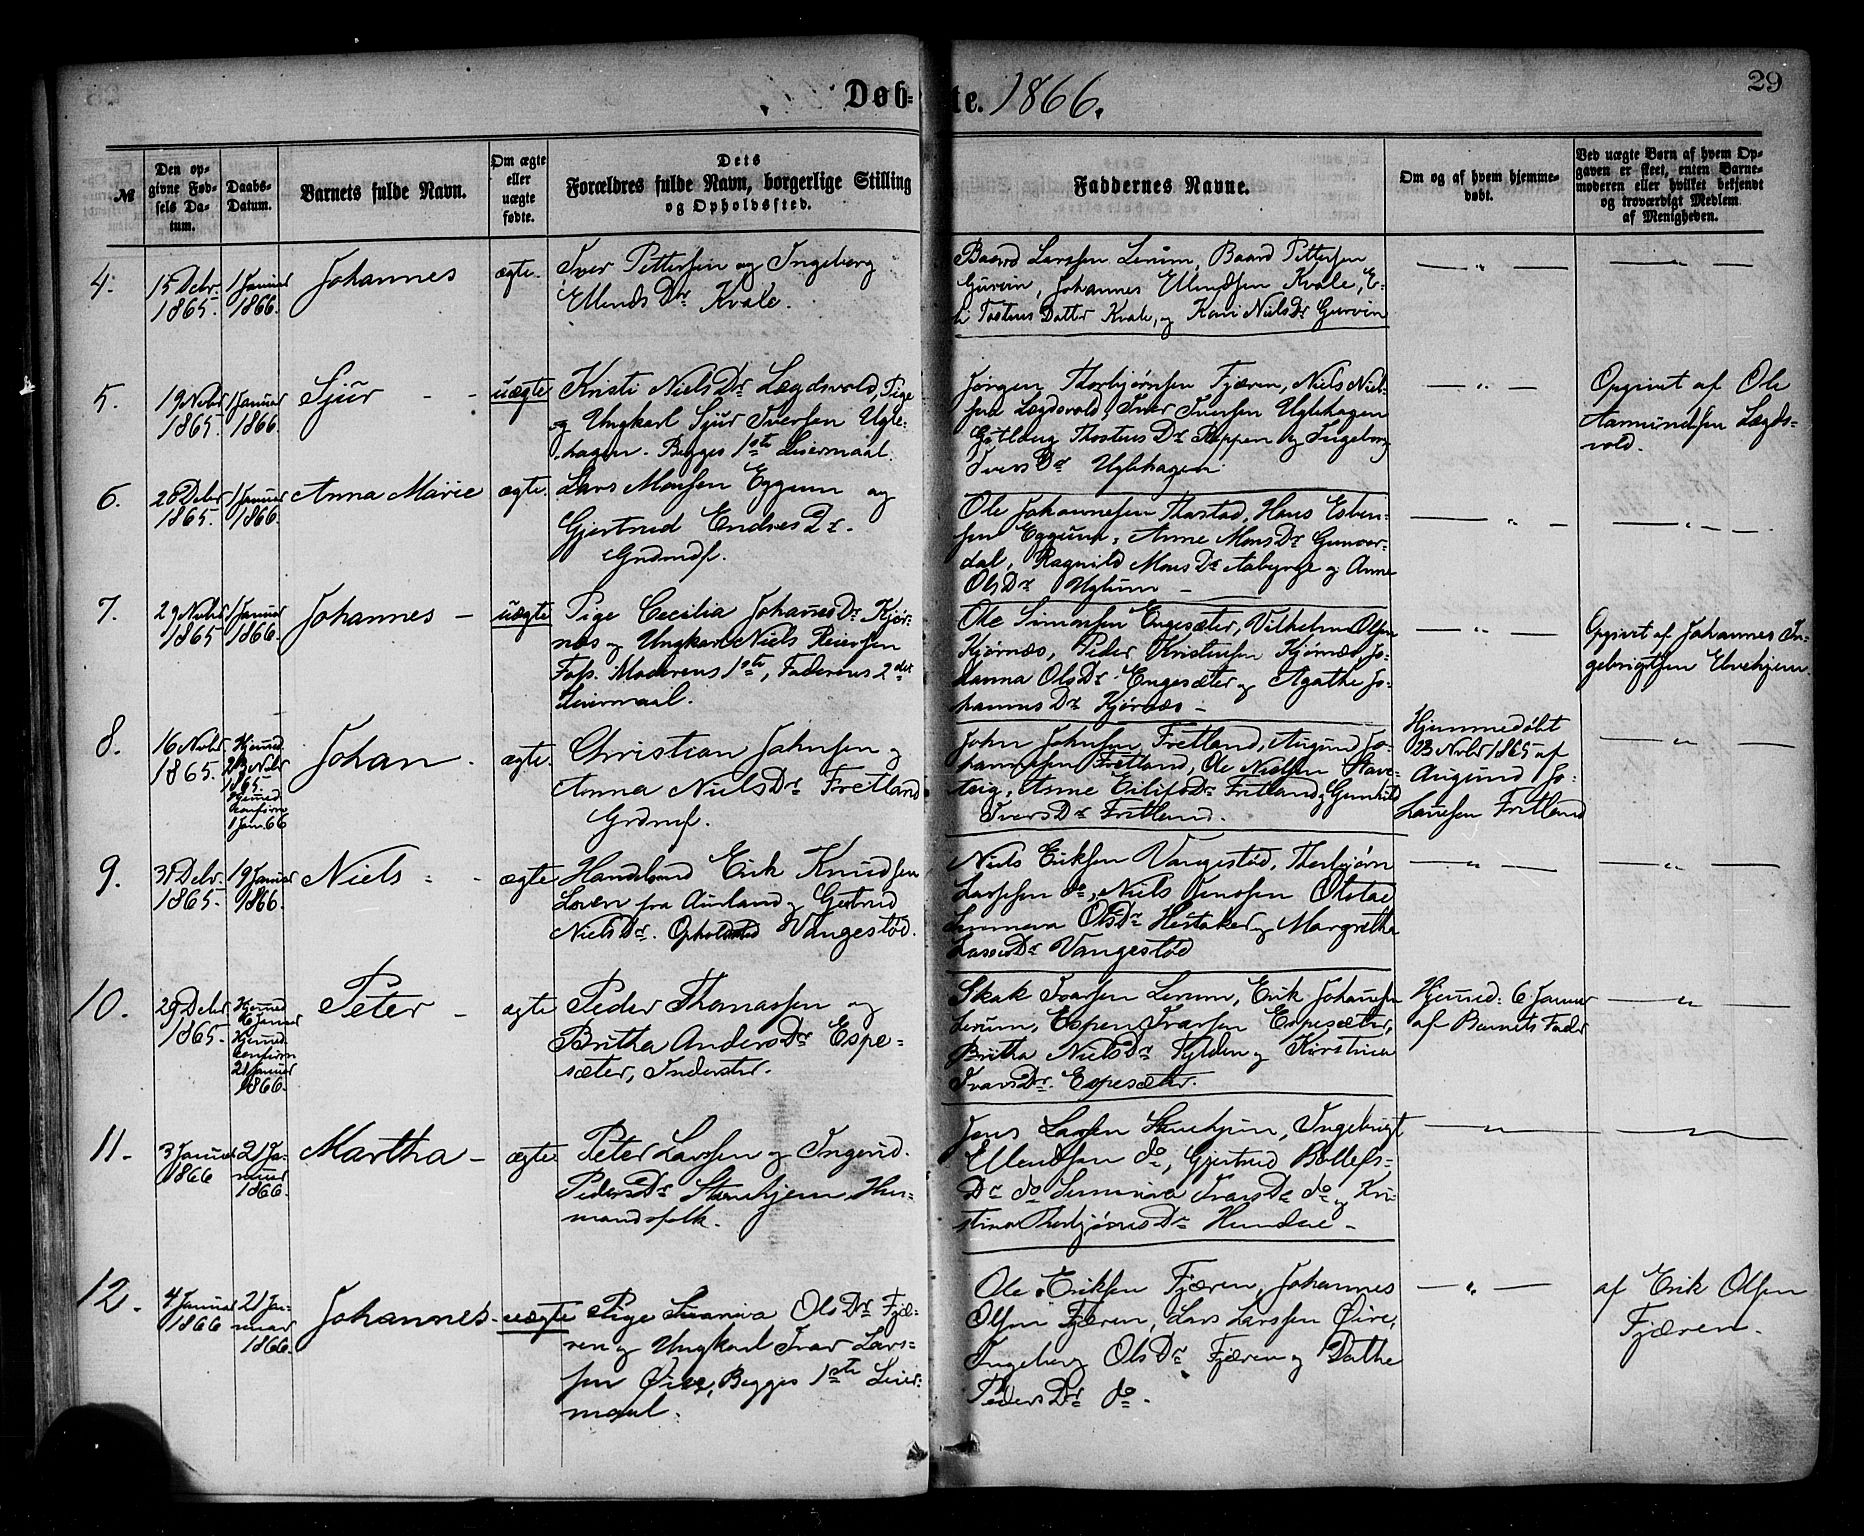 Døb- te. 1866. 29
№
Den opgivne Fødsels Datum.
Daabs-Datum.
Barnets fulde Navn.
Om ægte eller uægte fødte.
Dets Forældres fulde Navn, borgerlige Stilling og Opholdssted.
Faddernes Navne.
Om og af hvem hjemmedøbt.
Ved uægte Børn af hvem Opgaven er skeet, enten Barnemoderen eller hvilket bekjendt og troværdigt Medlem af Menigheden.
4.
15 Debr
1865.
1 Januar
1866.
Johannes
ægte.
Iver Pettersen og Ingeborg
Ellends Dr Kvale.
Baard Larssen Lerum, Baard Pettersen
Gurvin, Johannes Ellendsen Kvale, E-
li Tostens Datter Kvale, og Kari Niels Dr Gurvin
5.
19 Nobr
1865.
1 Januar
1866.
Sjur
uægte
Kristi Niels Dr Lægdsvold, Pige
og Ungkarl Sjur Iversen Ugle-
hagen. Begges 1ste Leiermaal.
Jørgen Thorbjørnsen Fjæren, Niels Niel-
sen Lægdsvold, Iver Iversen Uglehagen
Thostens Dr og Ingeborg
Ivers Dr Uglehagen.
Opgivet af Ole
Aamundsen Lægds-
vold.
6.
28 Debr
1865.
1 Januar
1866.
Anna Marie
ægte.
Lars Monsen Eggum og
Gjertrud Endres Dr.
Grdmdf.
Ole Johannesen Thorstad, Hans Esben-
sen Eggum, Anne Mons Dr
dal, Ragnild Mons Dr Aaberge og Anne
Ols Dr Uglum
7.
29 Nobr
1865
1 Januar
1866.
Johannes
uægte
Pige Cecilia Johannes Dr Kjør-
næs og Ungkarl Niels Reiersen
Fos. Moderens 1ste, Faderens 2det
Leiermaal.
Ole Simonsen Engesæter, Vilhelm Olsen
Kjørnæs, Peder Kristensen Kjørnæs, Jo-
hanna Ols Dr Engesæter og Agathe Jo-
hannes Dr Kjørnæs
Opgivet af Johannes In-
gebrigtsen Elvehjem.
8.
16 Nobr
1865.
Hjemmed.
23 Nobr
1865.
Hjemmed
Confirm
1 Jan. 66
Johan
ægte.
Christian Johnsen og
Anna Niels Dr Fretland
Grdmf.
John Johnsen Fretland, Augund Jo-
hannesen Fretland, Ole Nielsen Stave-
teig, Anne Eilifs Dr Fretland og Gunhild
Ivers Dr Fretland.
Hjemmedøbt
23 Nobr 1865 af
Augund Jo-
hanesen Fretland
9.
31 Debr
1865.
19 Januar
1866.
Niels
ægte
Handelsmd Erik Knudsen
Loven fra Aurland og Gjertrud
Niels Dr. Opholdsted Vangestød.
Niels Eriksen Vangestød, Thorbjørn
Lassesen do, Niels Jenssen Olstae
Sunneva Ols Dr Hestaker og Margretha
Lasses Dr Vangestød
10.
29 Debr
1865.
Hjemmed
6 Januar
Hjemmed.
Confirm
21 Januar
1866.
Peter
ægte
Peder Thomassen og
Britha Anders Dr Espe-
sæter, Inderster.
Skak Ivarsen Lerum, Erik Johansen
Lerum, Espen Ivarsen Espesæter,
Britha Niels Dr Fylden og Kirstina
Ivars Dr. Espesæter.
Hjemmed: 6 Januar
af Barnets Fader
11.
3 Januar
1866
21 Ja-
nuar
1866.
Martha
ægte
Peter Larssen og Ingerid
Peders Dr Stenehjem Hus-
mandsfolk.
Jens Larsen Stenehjem, Ingebrigt
Ellendsen do, Gjertrud Bottolfs
Dr do Sunniva Ivars Dr do og Kri-
stina Thorbjørns Dr Hundere
12.
4 Januar
1866
21 Ja-
nuar
1866.
Johannes
uægte
Pige Sunniva Ols Dr Fjæ-
ren og Ungkarl Ivar Lars-
sen Øire, Begges 1ste Leier-
maal.
Ole Eriksen Fjæren, Johannes
Olsen Fjæren, Lars Larssen Øire,
Ingeborg Ols Dr Fjæren og Dorthe
Peders Dr do.
af Erik Olsen
Fjæren.